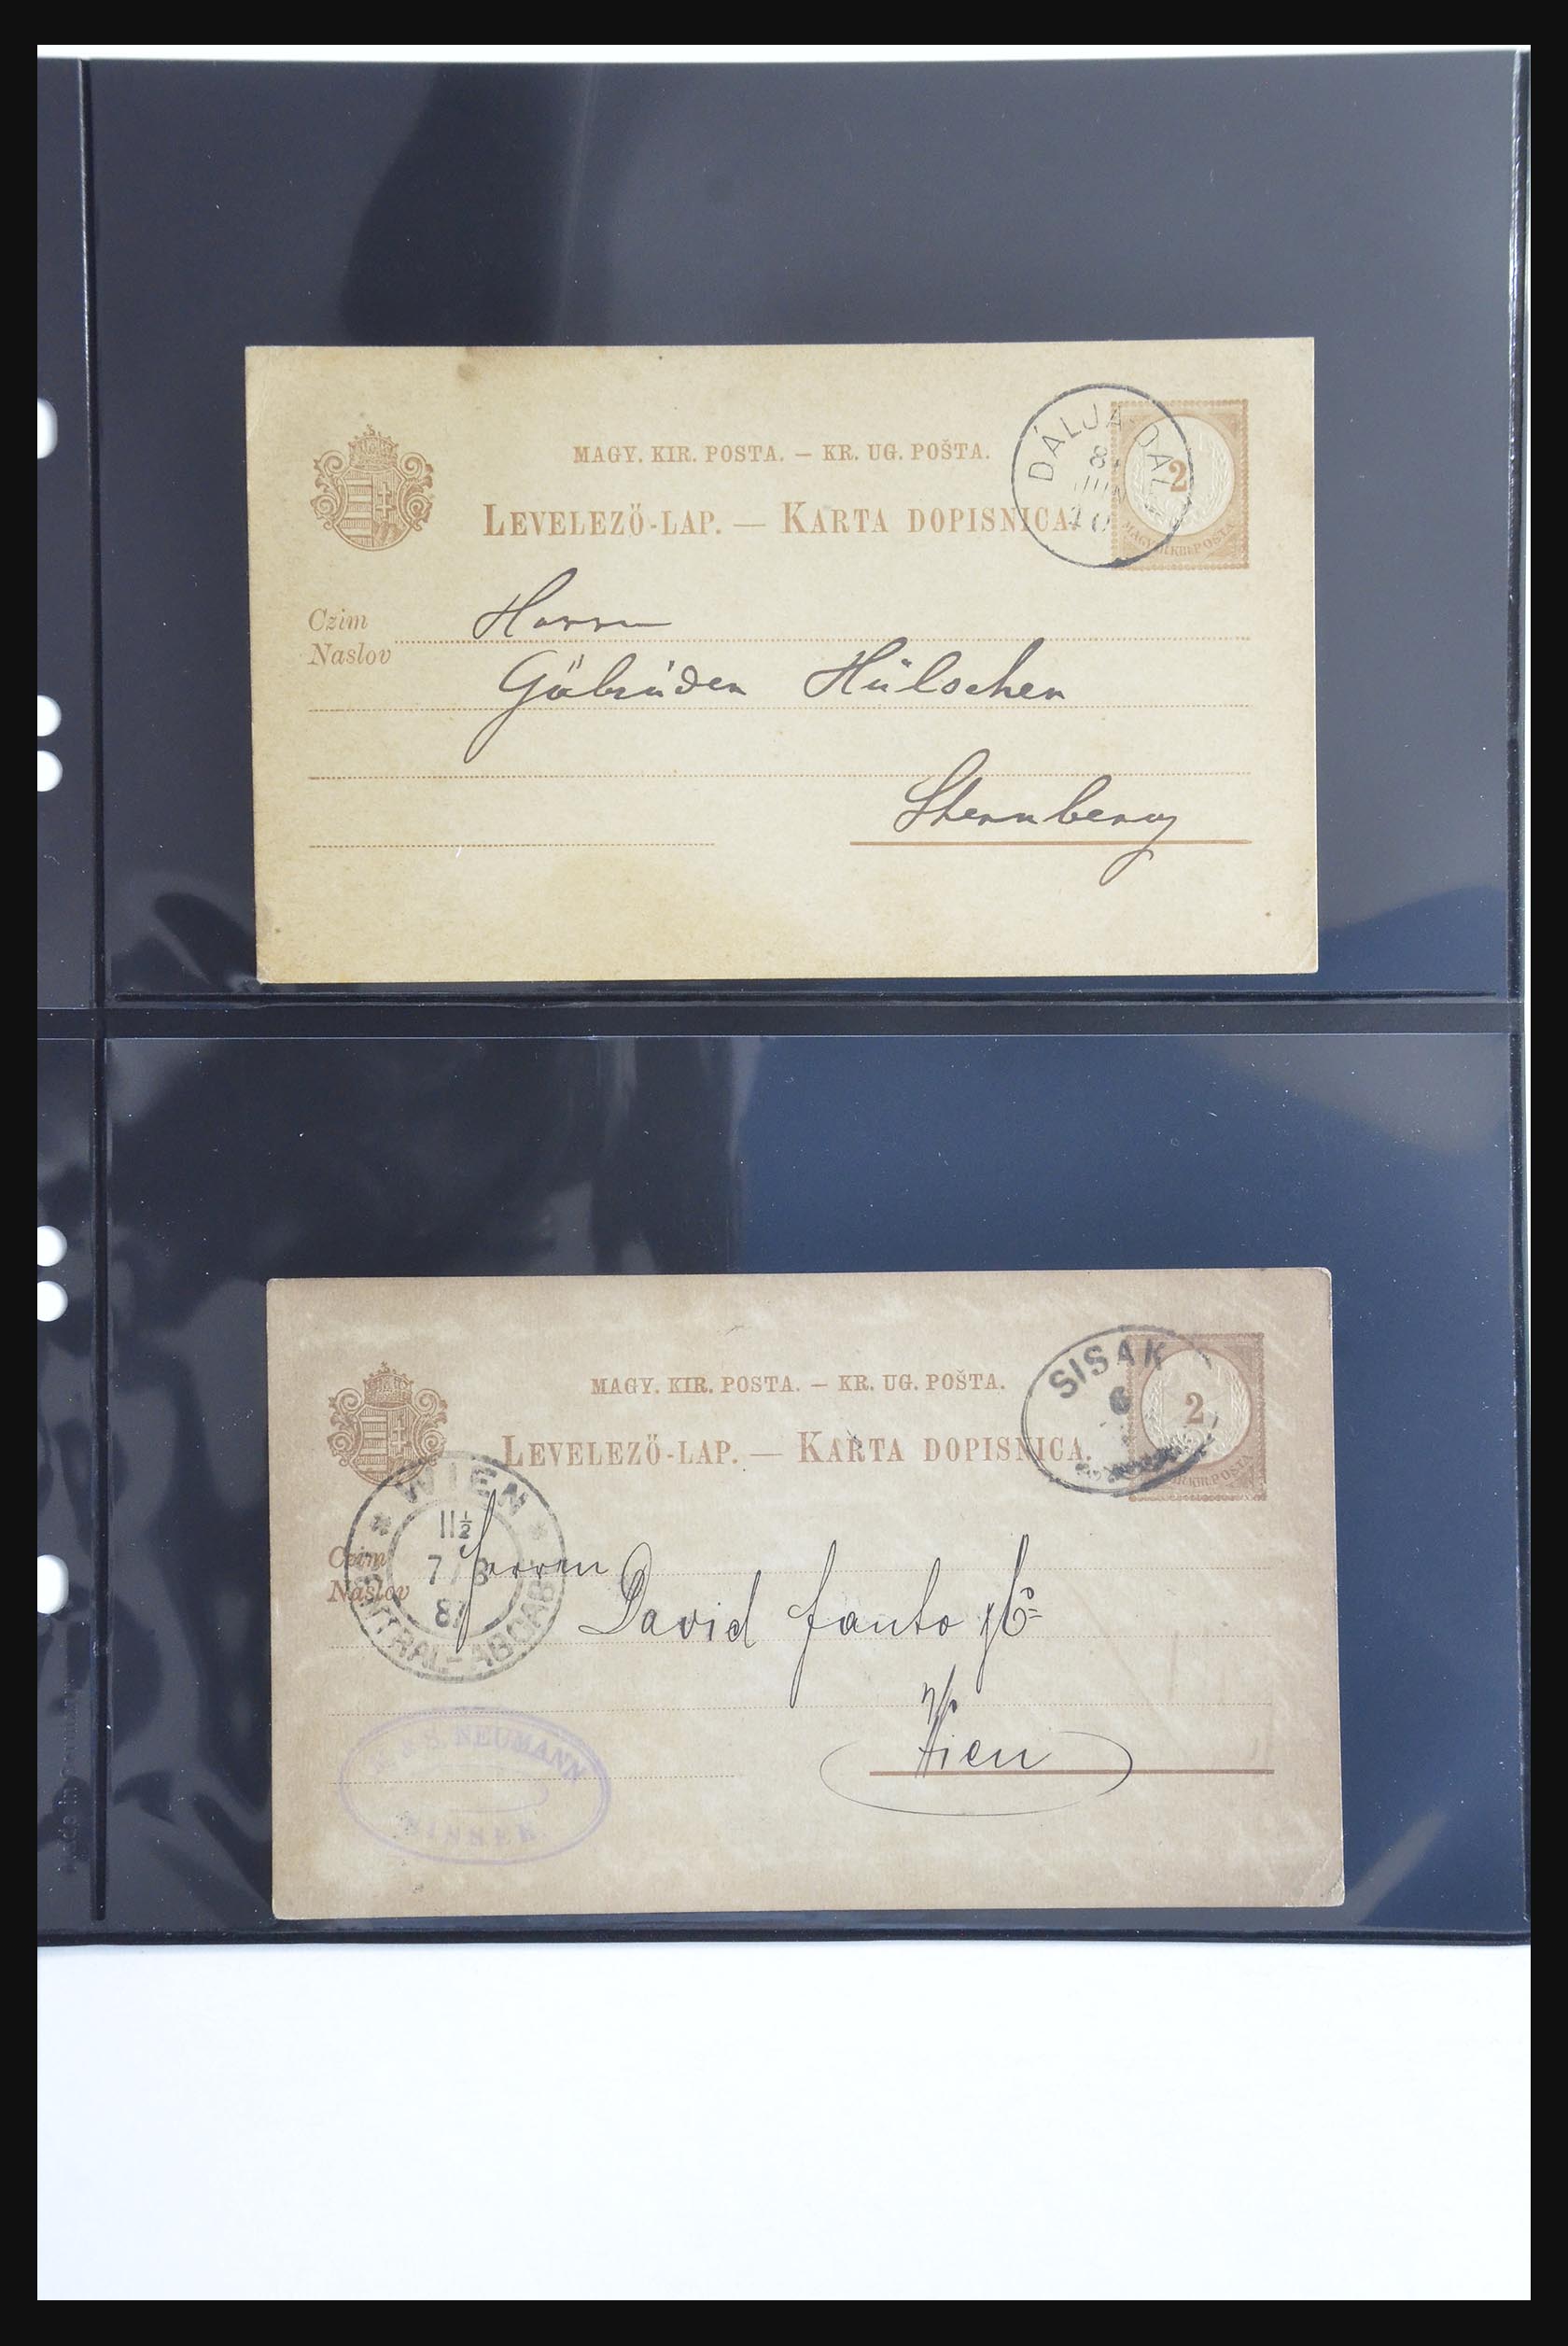 MAGY. KIR. POSTA. — KR. UG. POŠTA.
LEVELEZŐ-LAP. — KARTA DOPISNICA.
DÁLJA-DAL
8
2
MAGYAR KIR. POSTA
Czim
Naslov
Herrn
Gebrüder Hülscher
Sternberg
MAGY. KIR. POSTA. — KR. UG. POŠTA.
LEVELEZŐ-LAP. — KARTA DOPISNICA.
SISAK
6
2
KIR. POSTA
WIEN
11½
7/3
87
CENTRAL-ABGABE
Czim
Naslov
Herren
David Fanto & Co
Wien
& S. NEUMANN
SISSEK